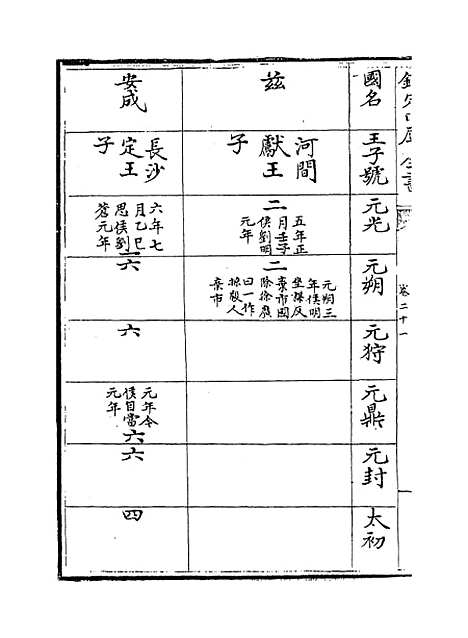 欽定四庫全書
卷二十一
國名
王子號
元光
元朔
元狩
元鼎
元封
太初
茲
河間
獻王
子
二
五年正
月壬子
侯劉明
元年
二
元朔三
年侯明
坐謀反
棄市國
除徐廣
曰一作
掠殺人
棄市
安成
長沙
定王
子
六年七
月乙巳
思侯劉
蒼元年
一
六
六
元年今
侯自當
元年
六
六
四